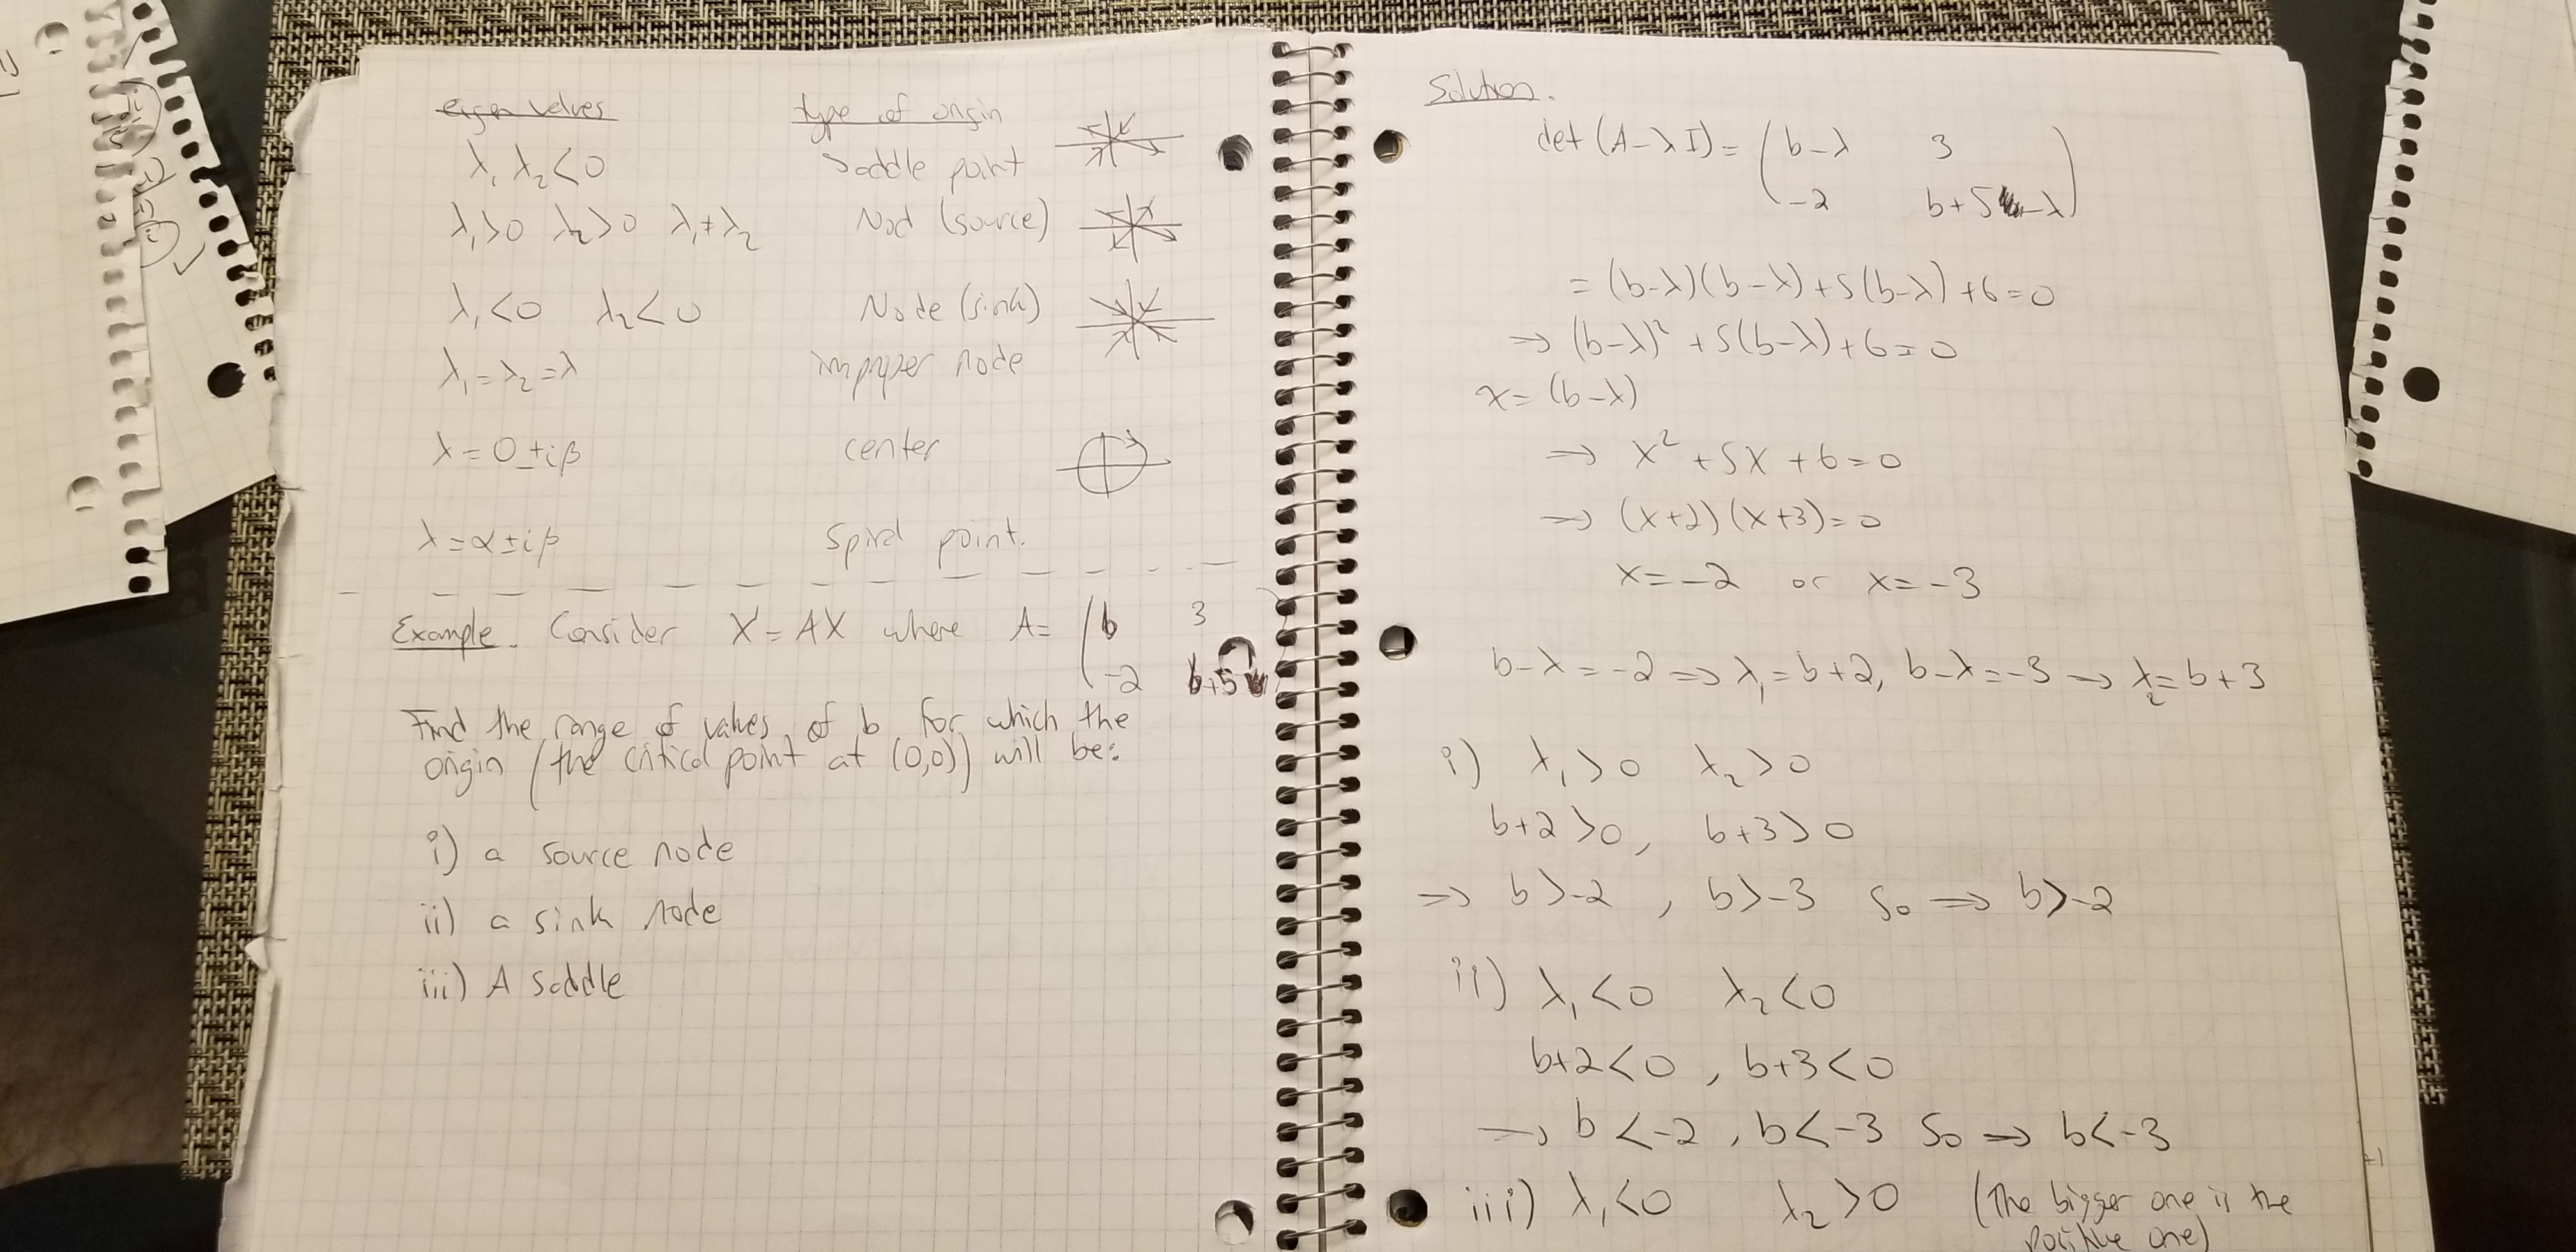 eigen values type of origin
λ₁ λ₂ < 0 Saddle point
λ₁>0 λ₂>0 λ₁≠λ₂ Nod (source)
λ₁<0 λ₂<0 Node (sink)
λ₁=λ₂=λ improper node
λ=0±iβ center
λ=α±iβ Spiral point.
Example. Consider X'=AX where A= (b 3
-2 b+5
Find the range of values of b for which the
origin (the critical point at (0,0)) will be:
i) a source node
ii) a sink node
iii) A saddle
Solution.
det (A-λI)= (b-λ 3
-2 b+5-λ)
= (b-λ)(b-λ)+5(b-λ)+6=0
⇒ (b-λ)² +5(b-λ)+6=0
x= (b-λ)
⇒ x² +5x +6=0
⇒ (x+2)(x+3)=0
x=-2 or x=-3
b-λ=-2 ⇒ λ₁=b+2, b-λ=-3 ⇒ λ₂=b+3
i) λ₁>0 λ₂>0
b+2>0, b+3>0
⇒ b>-2 , b>-3 So ⇒ b>-2
ii) λ₁<0 λ₂<0
b+2<0 , b+3<0
⇒ b<-2 , b<-3 So ⇒ b<-3
iii) λ₁<0 λ₂>0 (The bigger one is the
positive one)